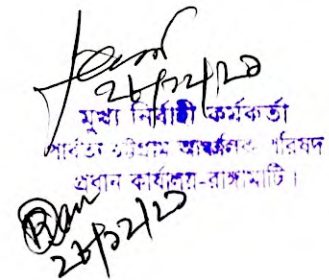 ২৮/১২/২০
মুখ্য নির্বাহী কর্মকর্তা
পার্বত্য চট্টগ্রাম আঞ্চলিক পরিষদ
প্রধান কার্যালয়-রাঙ্গামাটি।
২৮/১২/২০